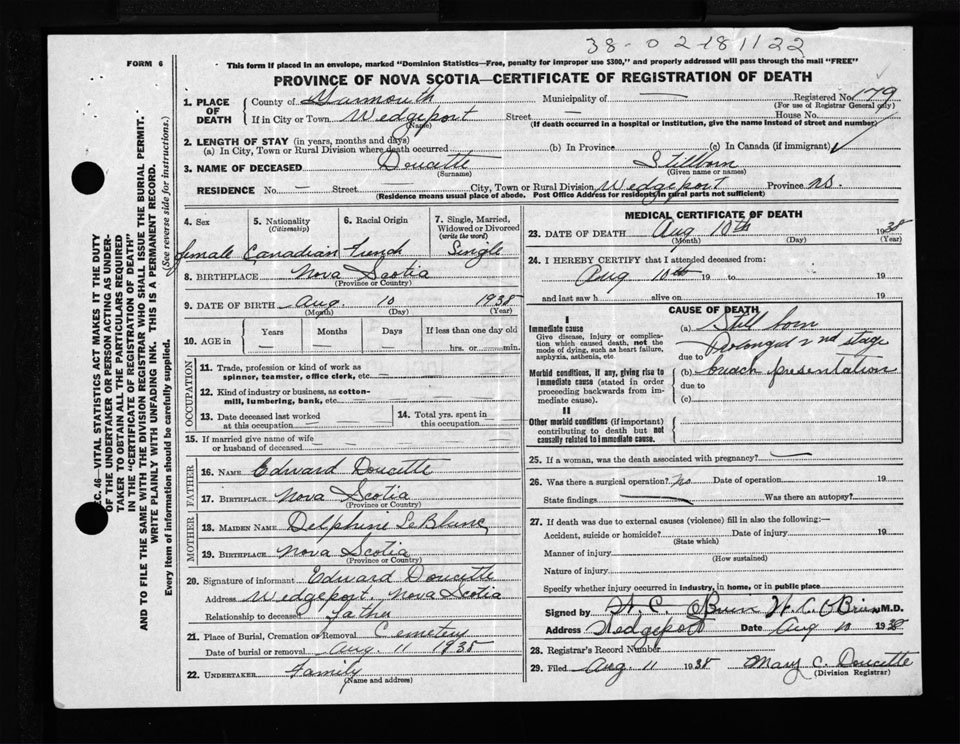 38-02181122
FORM 6
This form if placed in an envelope, marked "Dominion Statistics—Free, penalty for improper use $300," and properly addressed will pass through the mail "FREE"
PROVINCE OF NOVA SCOTIA—CERTIFICATE OF REGISTRATION OF DEATH
1. PLACE OF DEATH
County of Yarmouth Municipality of — Registered No. 179
(For use of Registrar General only)
If in City or Town Wedgeport Street — House No.
(Name) (If death occurred in a hospital or institution, give the name instead of street and number)
2. LENGTH OF STAY (in years, months and days)
(a) In City, Town or Rural Division where death occurred (b) In Province (c) In Canada (if immigrant)
3. NAME OF DECEASED Doucette Stillborn
(Surname) (Given name or names)
RESIDENCE No. — Street — City, Town or Rural Division Wedgeport Province N.S.
(Residence means usual place of abode. Post Office Address for residents in rural parts not sufficient)
4. Sex
female
5. Nationality
(Citizenship)
Canadian
6. Racial Origin
French
7. Single, Married, Widowed or Divorced
(write the word)
Single
8. BIRTHPLACE Nova Scotia
(Province or Country)
9. DATE OF BIRTH Aug. 10 1938
(Month) (Day) (Year)
10. AGE in Years Months Days If less than one day old
— — — hrs. or min.
OCCUPATION
11. Trade, profession or kind of work as spinner, teamster, office clerk, etc. —
12. Kind of industry or business, as cotton-mill, lumbering, bank, etc. —
13. Date deceased last worked at this occupation —
14. Total yrs. spent in this occupation —
15. If married give name of wife or husband of deceased —
FATHER
16. NAME Edward Doucette
17. BIRTHPLACE Nova Scotia
(Province or Country)
MOTHER
18. MAIDEN NAME Delphine LeBlanc
19. BIRTHPLACE Nova Scotia
(Province or Country)
20. Signature of informant Edward Doucette
Address Wedgeport, Nova Scotia
Relationship to deceased father
21. Place of Burial, Cremation or Removal Cemetery
Date of burial or removal Aug. 11 1938
22. UNDERTAKER Family
(Name and address)
MEDICAL CERTIFICATE OF DEATH
23. DATE OF DEATH Aug 10th 1938
(Month) (Day) (Year)
24. I HEREBY CERTIFY that I attended deceased from:
Aug 10th 19 to 19
and last saw h alive on 19
CAUSE OF DEATH
I
Immediate cause
Give disease, injury or complication which caused death, not the mode of dying, such as heart failure, asphyxia, asthenia, etc.
(a) Still born
Prolonged 2nd stage
due to
Morbid conditions, if any, giving rise to immediate cause (stated in order proceeding backwards from immediate cause).
(b) breach presentation
due to
(c)
II
Other morbid conditions (if important) contributing to death but not causally related to immediate cause.
25. If a woman, was the death associated with pregnancy? —
26. Was there a surgical operation? no Date of operation 19
State findings — Was there an autopsy?
27. If death was due to external causes (violence) fill in also the following:—
Accident, suicide or homicide? Date of injury 19
(State which)
Manner of injury
(How sustained)
Nature of injury
Specify whether injury occurred in industry, in home, or in public place
Signed by H. C. O'Brien H. C. O'Brien M.D.
Address Wedgeport Date Aug 10 1938
28. Registrar's Record Number
29. Filed Aug 11 1938 Mary C. Doucette
(Division Registrar)
R.C. 46—VITAL STATISTICS ACT MAKES IT THE DUTY
OF THE UNDERTAKER OR PERSON ACTING AS UNDER-
TAKER TO OBTAIN ALL THE PARTICULARS REQUIRED
IN THE "CERTIFICATE OF REGISTRATION OF DEATH"
AND TO FILE THE SAME WITH THE DIVISION REGISTRAR WHO SHALL ISSUE THE BURIAL PERMIT.
WRITE PLAINLY WITH UNFADING INK. THIS IS A PERMANENT RECORD.
Every item of information should be carefully supplied. (See reverse side for instructions.)